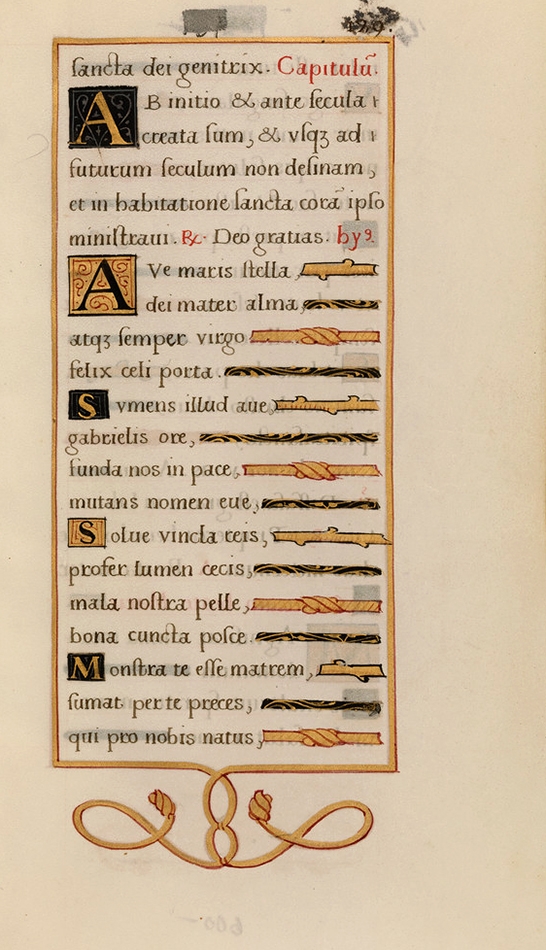 sancta dei genitrix. Capitulū.
AB initio & ante secula
creata sum, & vsqꝫ ad
futurum seculum non desinam,
et in habitatione sancta corā ipso
ministraui. ℟. Deo gratias. hyꝰ.
AVe maris stella,
dei mater alma,
atqꝫ semper virgo
felix celi porta.
Svmens illud aue,
gabrielis ore,
funda nos in pace,
mutans nomen eue,
Solue vincla reis,
profer lumen cecis,
mala nostra pelle,
bona cuncta posce.
Monstra te esse matrem,
sumat per te preces,
qui pro nobis natus,